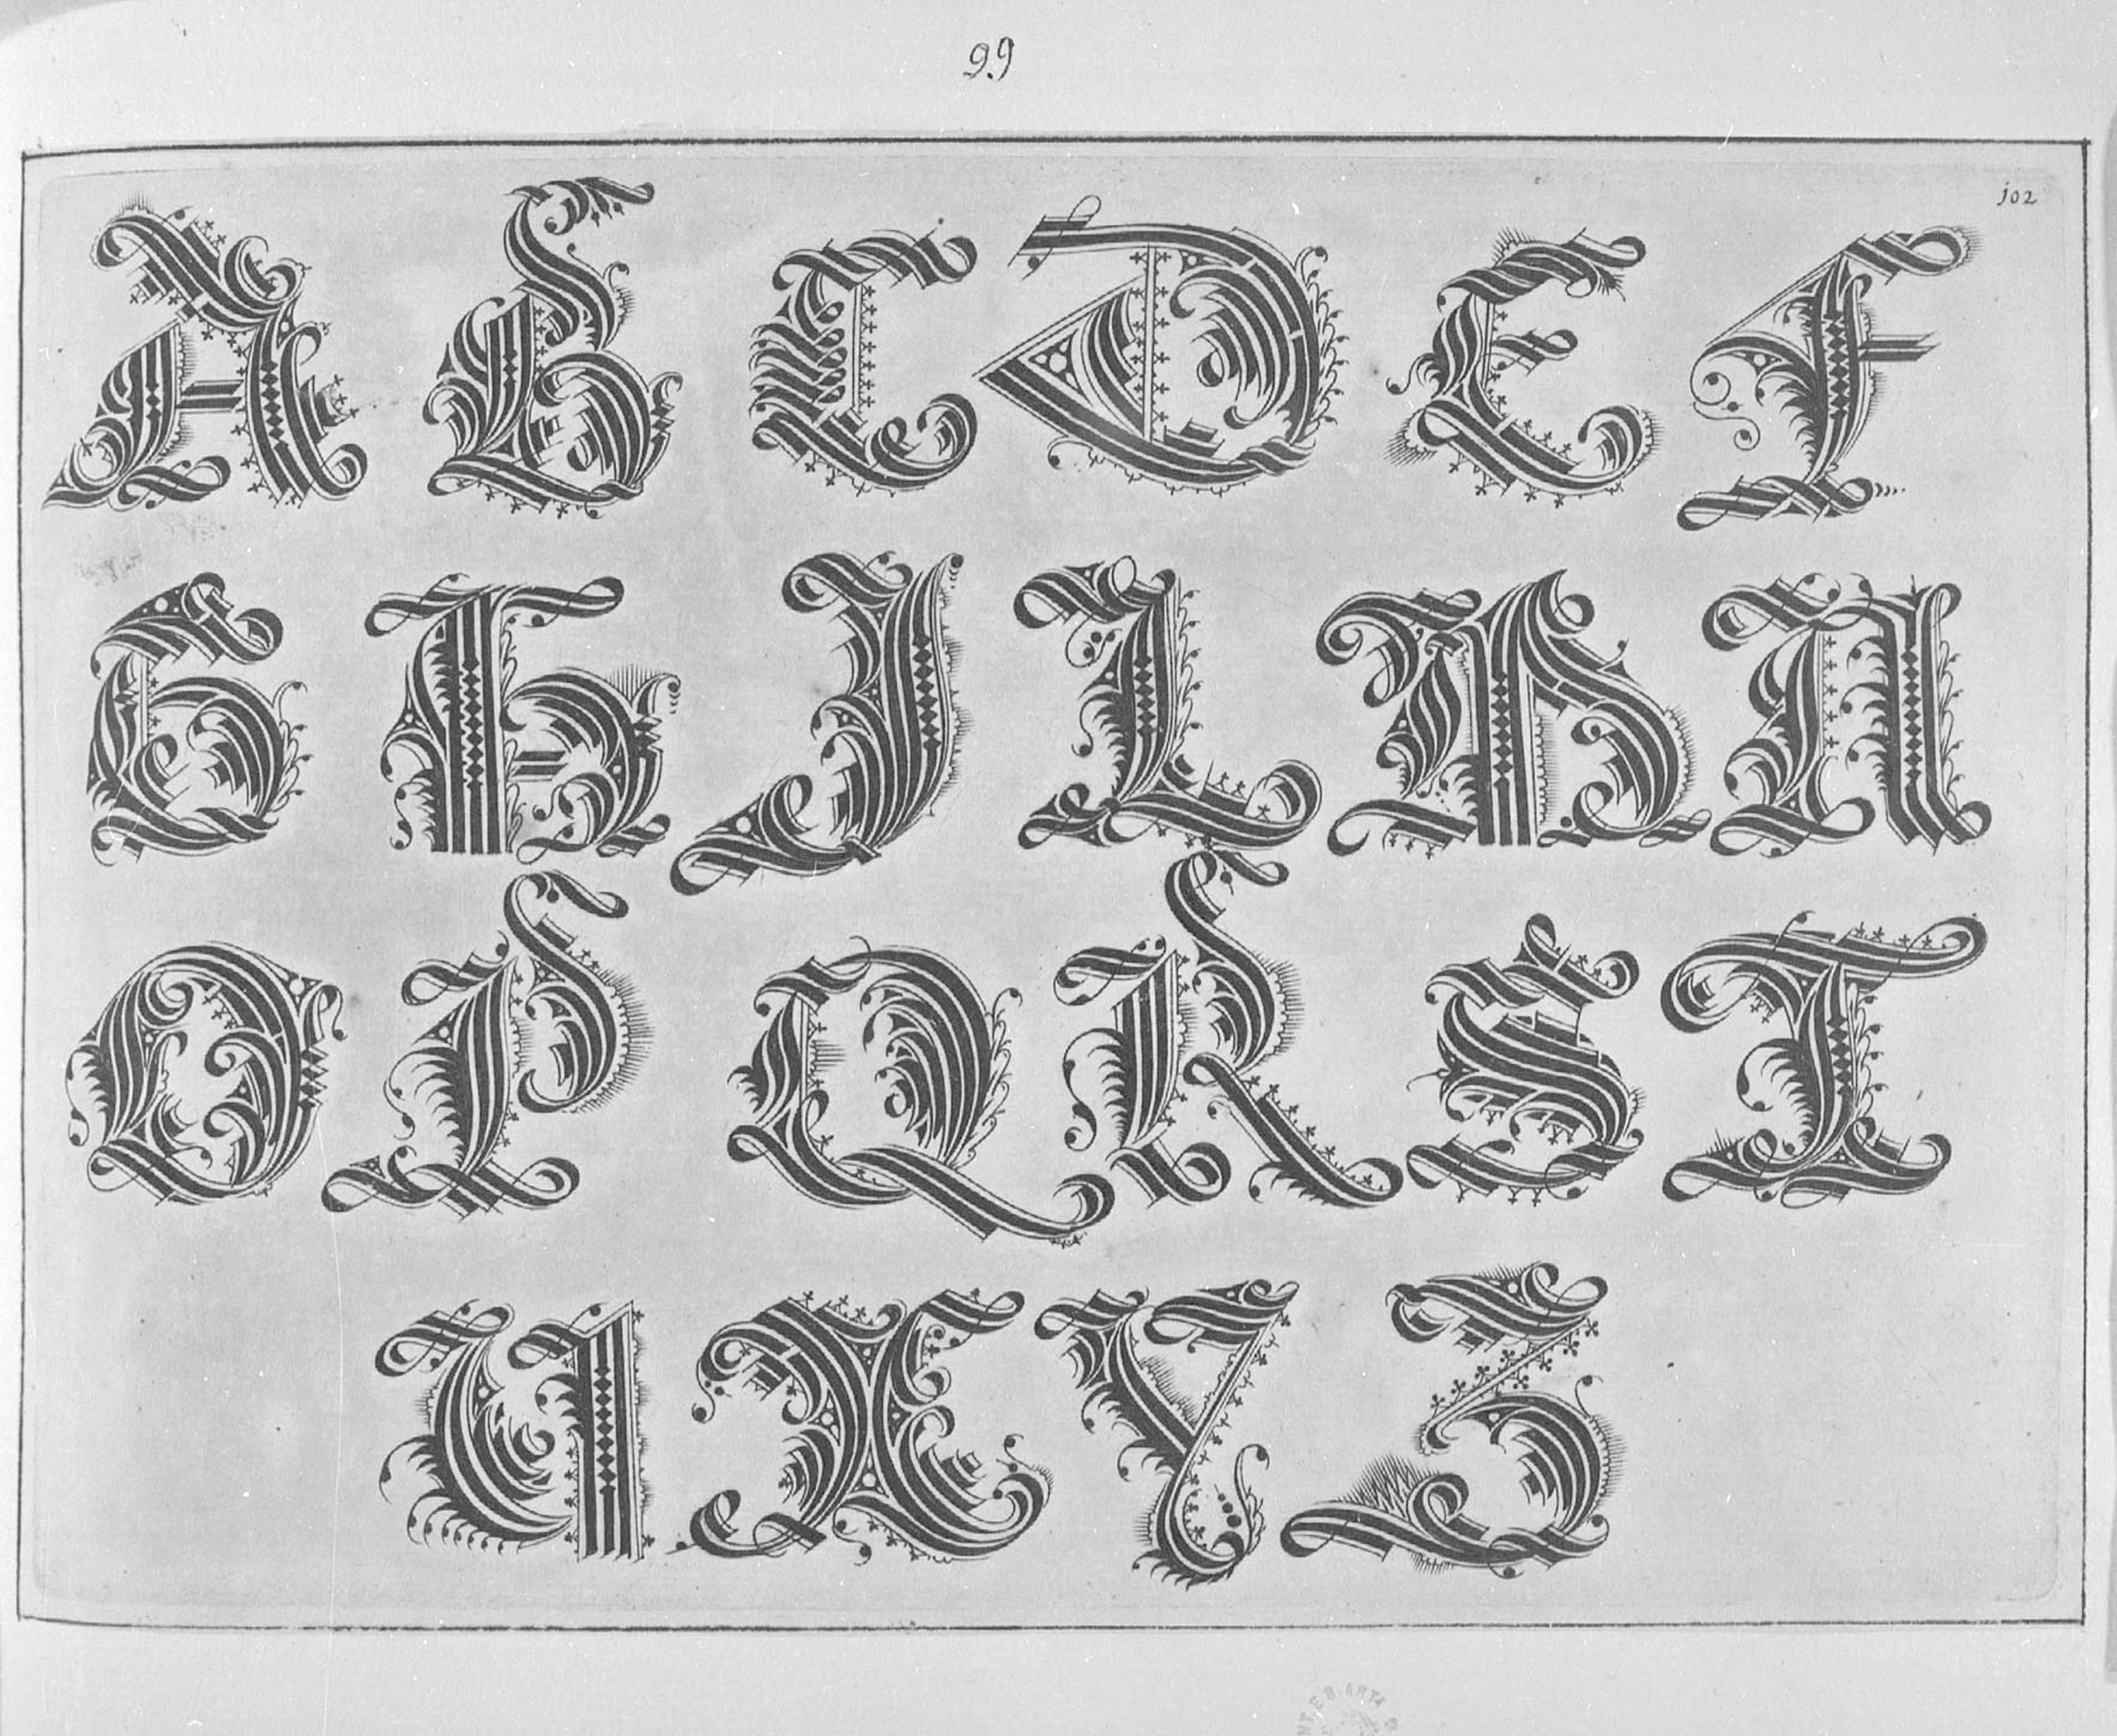 99
j02
A B C D E F
G H J L M N
O P Q R S T
U X Y Z